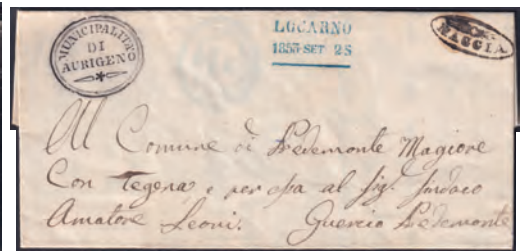 MUNICIPALITÀ
DI
AURIGENO
LOCARNO
1853 SET 28
MAGGIA
Al Comune di Pedemonte Magiore
Con Tegna, e per essa al Sig. Sindaco
Amatore Leoni. Pedemonte